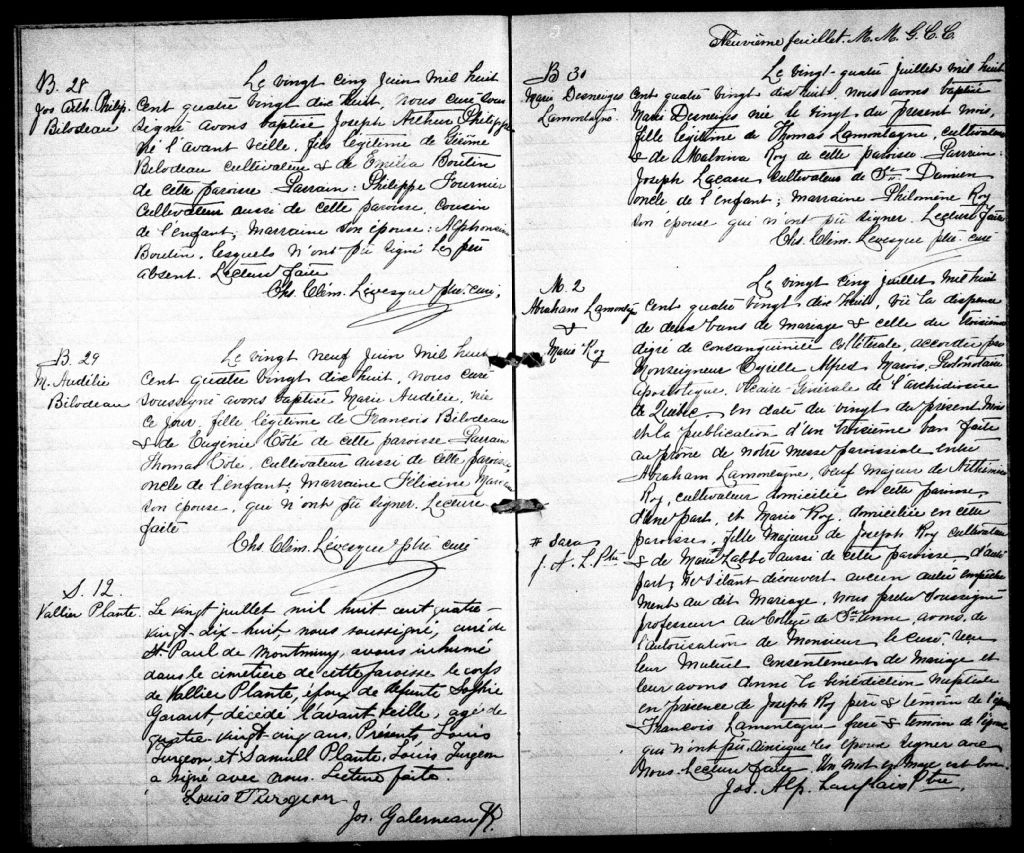 B. 28
Jos Arth. Philip.
Bilodeau
Le vingt cinq Juin mil huit
Cent quatre vingt dix huit, nous curé sous
signé avons baptisé Joseph Arthur Philippe
né l'avant veille, fils légitime de
Bilodeau cultivateur & de Emilia Boutin
de cette paroisse. Parrain: Philippe Fournier
Cultivateur aussi de cette paroisse, cousin
de l'enfant; Marraine son épouse: Alphonsine
Boutin, lesquels n'ont pu signé le père
absent. Lecture faite
Chs. Clém. Levesque ptre. curé.
B. 29
M. Audélie
Bilodeau
Le vingt neuf Juin mil huit
Cent quatre vingt dix huit, nous curé
soussigné avons baptisé Marie Audélie, née
ce jour fille légitime de François Bilodeau
& de Eugénie Côté de cette paroisse Parrain
Thomas Côté, cultivateur aussi de cette paroisse
oncle de l'enfant; Marraine
son épouse, qui n'ont pu signer. Lecture
faite
Chs. Clém. Levesque ptre curé
S. 12.
Vallier Plante.
Le vingt juillet mil huit cent quatre-
vingt-dix-huit nous soussigné, curé de
St. Paul de Montminy, avons inhumé
dans le cimetière de cette paroisse le corps
de Vallier Plante, époux de défunte Sophie
Garant décédé l'avant veille, agé de
quatre-vingt-cinq ans. Présents Louis
Turgeon et Samuel Plante. Louis Turgeon
a signé avec nous. Lecture faite.
Louis Turgeon
Jos. Galerneau
Neuvième feuillet. M. M. G. C. C.
B 30
Marie Desneiges
Lamontagne
Le vingt-quatre Juillet mil huit
Cent quatre vingt dix huit, nous avons baptisé
Marie Desneiges née le vingt du présent mois,
fille légitime de Thomas Lamontagne, cultivateur
& de Malvina Roy de cette paroisse. Parrain:
Joseph Lacasse cultivateur de St. Damien
oncle de l'enfant; Marraine Philomène Roy
son épouse qui n'ont pu signer. Lecture faite
Chs. Clém. Levesque ptre. curé
M. 2
Abraham Lamontg
&
Marie Roy
Le vingt cinq Juillet mil huit
Cent quatre vingt dix huit, vu la dispense
de deux bans de mariage & celle du troisième
degré de consanguinité collatérale, accordée par
Monseigneur Cyrille Alfred Marois, Protonotaire
apostolique, Vicaire-Générale de l'archidiocèse
de Québec, en date du vingt du présent mois
et la publication d'un troisième ban faite
au prône de notre messe paroissiale entre
Abraham Lamontagne, veuf majeur de Arthémise
Roy, cultivateur domicilié en cette paroisse,
d'une part, et Marie Roy domiciliée en cette
# Sara
J. A. L. Ptre
paroisse, fille majeure de Joseph Roy cultivateur
& de Marie # Labbé aussi de cette paroisse d'autre
part; ne s'étant découvert aucun autre empêche
ment au dit mariage, nous prêtre soussigné
professeur au Collège de Ste. Anne, avons, de
l'autorisation de Monsieur le curé, reçu
leur mutuel consentement de mariage et
leur avons donné la bénédiction nuptiale
en présence de Joseph Roy père & témoin de l'épouse
François Lamontagne frère & témoin de l'époux
qui n'ont pu, ainsi que les époux signer avec
nous. Lecture faite. Un mot en marge est bon.
Jos. Alp. Langlais Ptre.